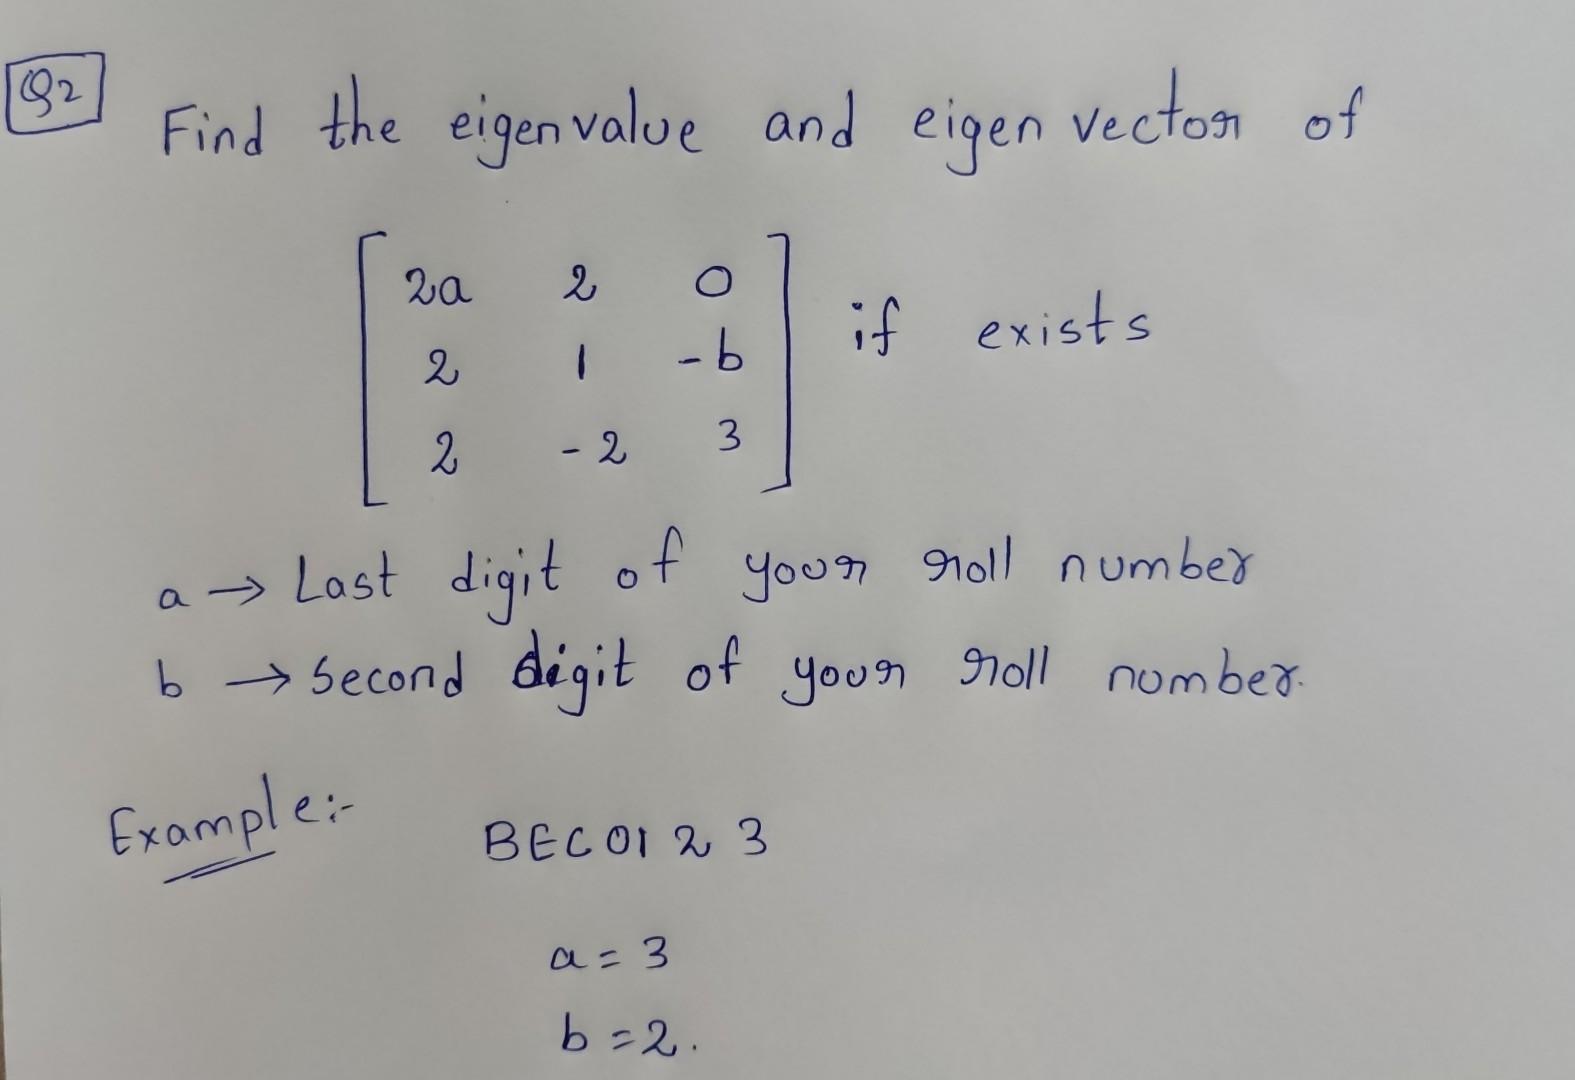 Q2
Find the eigen value and eigen vector of
2a 2 0
2 1 -b if exists
2 -2 3
a → Last digit of your roll number
b → Second digit of your roll number.
Example:-
BEC01 2 3
a = 3
b = 2.